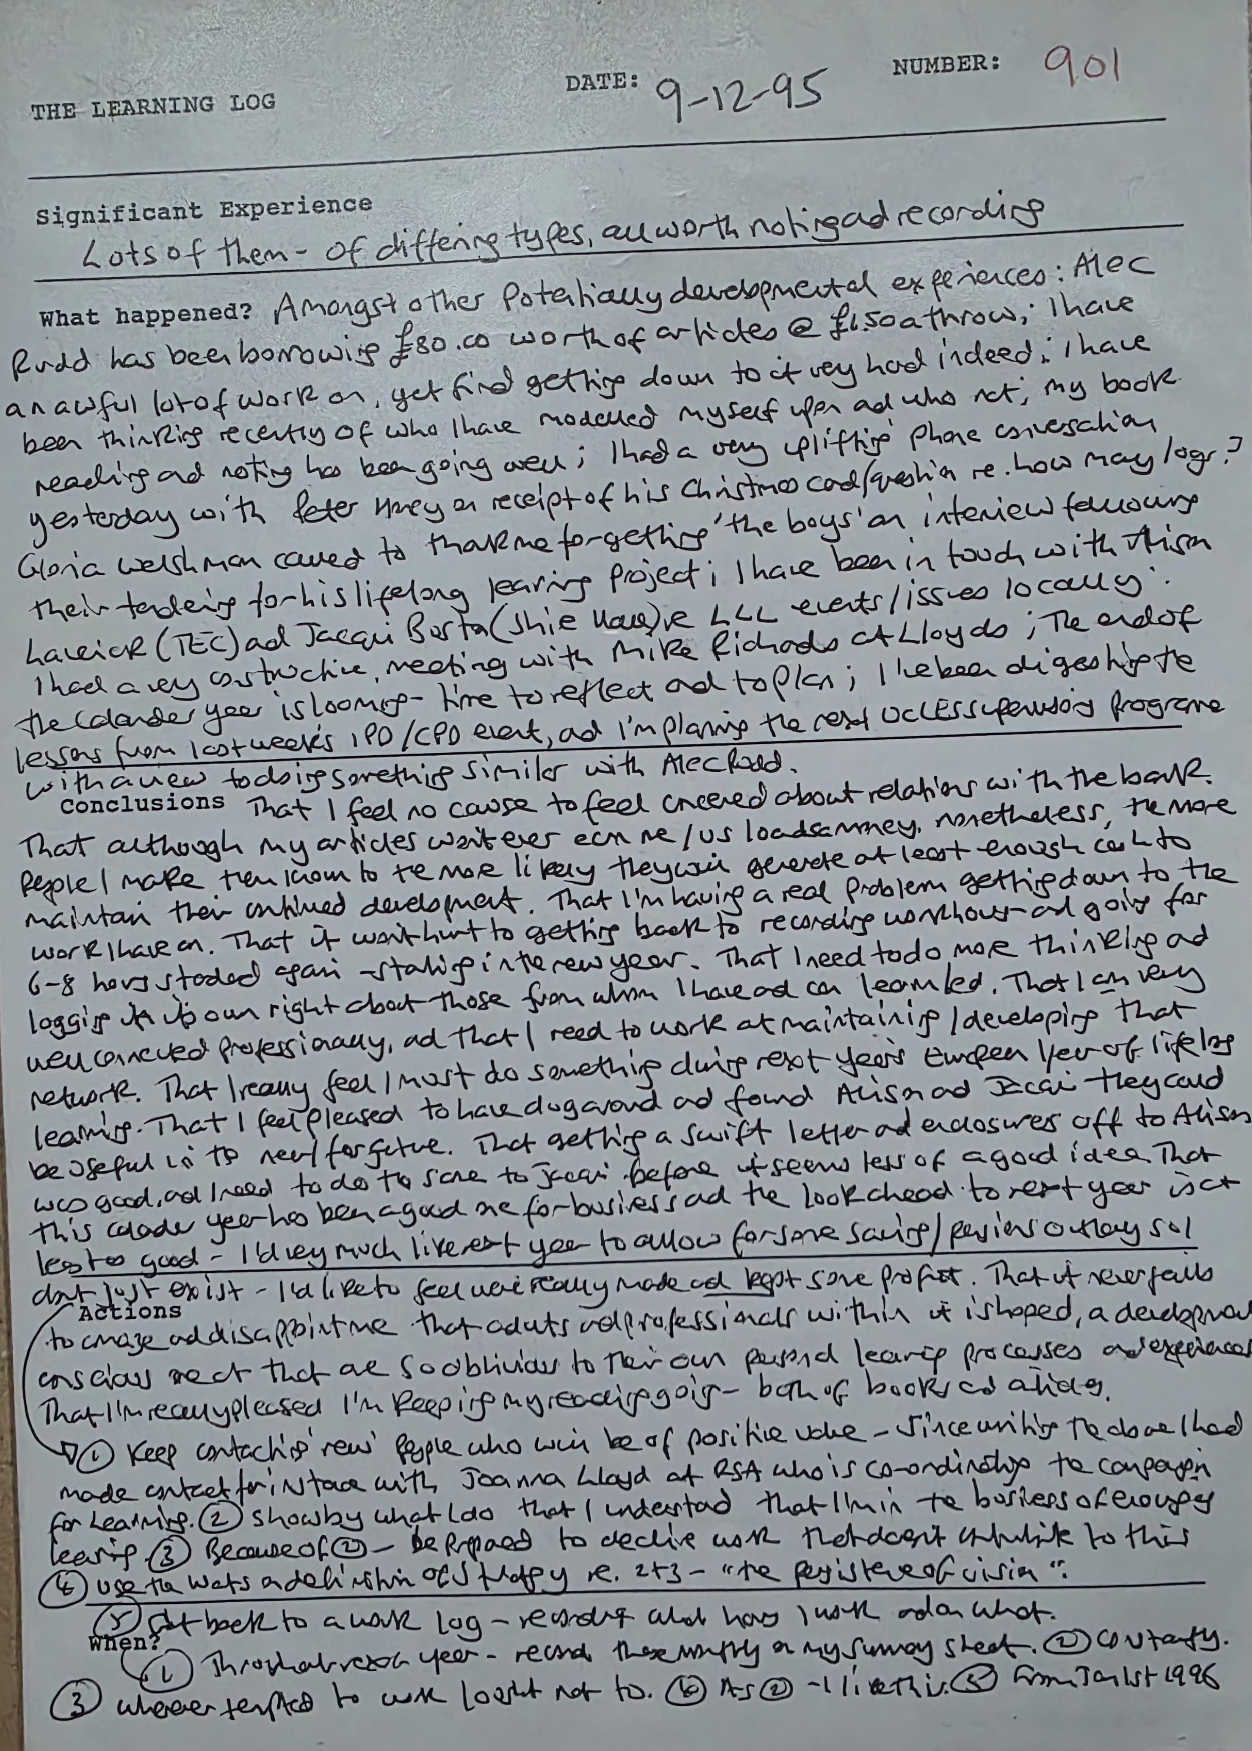 THE LEARNING LOG DATE: 9-12-95 NUMBER: 901
Significant Experience
Lots of them - of differing types, all worth noting and recording
What happened? Amongst other potentially developmental experiences: Alec
Rudd has been borrowing £80.00 worth of articles @ £1.50 a throw; I have
an awful lot of work on, yet find getting down to it very hard indeed; I have
been thinking recently of who I have modelled myself upon and who not; my book
reading and noting has been going well; I had a very uplifting phone conversation
yesterday with Peter Honey on receipt of his Christmas card/question re. how may logs?
Gloria Welshman called to thank me for getting 'the boys' an interview following
their tendering for his lifelong learning project; I have been in touch with Alison
(TEC) and Jacqui (Shire Hall) re LLL events/issues locally.
I had a very constructive meeting with Mike Richards at Lloyds; The end of
the calander year is looming - time to reflect and to plan; I've been digesting the
lessons from last week's IPD/CPD event, and I'm planning the next UCLES supervisory programe
with a view to doing something similar with Alec Rudd.
Conclusions That I feel no cause to feel about relations with the bank.
That although my articles won't ever earn me/us loadsamoney, nonetheless, the more
people I make them known to the more likely they will generate at least enough cash to
maintain their continued development. That I'm having a real problem getting down to the
work I have on. That it won't hurt to getting back to recording workhours and going for
6-8 hours again - starting in the new year. That I need to do more thinking and
logging in its own right about those from whom I have and can learn. That I am very
well connected professionally, and that I need to work at maintaining/developing that
network. That I really feel I must do something during next year's European Year of lifelong
learning. That I feel pleased to have dug around and found Alison and Jacqui. They could
be useful in the near/far future. That getting a swift letter and enclosures off to Alison
was good, and I need to do the same to Jacqui before it seems less of a good idea. That
this calader year has been a good one for business and the look ahead to next year isn't
less good - I'd very much like next year to allow for some saving/pensions outlay so I
don't just exist - I'd like to feel we've really made and kept some profit. That it never fails
Actions
to amaze and disappoint me that adults and professionals within it is hoped, a development
conscious are so oblivious to their own personal learning processes and experiences
That I'm really pleased I'm keeping my reading going - both of books and articles.
① Keep contacting 'new' people who will be of positive value - since writing the above I had
made contact for instance with Joanna Lloyd at RSA who is co-ordinating the campaign
for Learning. ② Show by what I do that I understand that I'm in the business of
learning. ③ Because of ② - be prepared to decline work that doesn't link to this
④ use definition of strategy re. 2+3 - "the persistence of vision".
⑤ Get back to a work log - recording what hours I work and on what.
When?
① Throughout next year - record these monthly on my summary sheet. ② Constantly.
③ whenever tempted to work I ought not to. ④ As ② - I like this. ⑤ From Jan 1st 1996